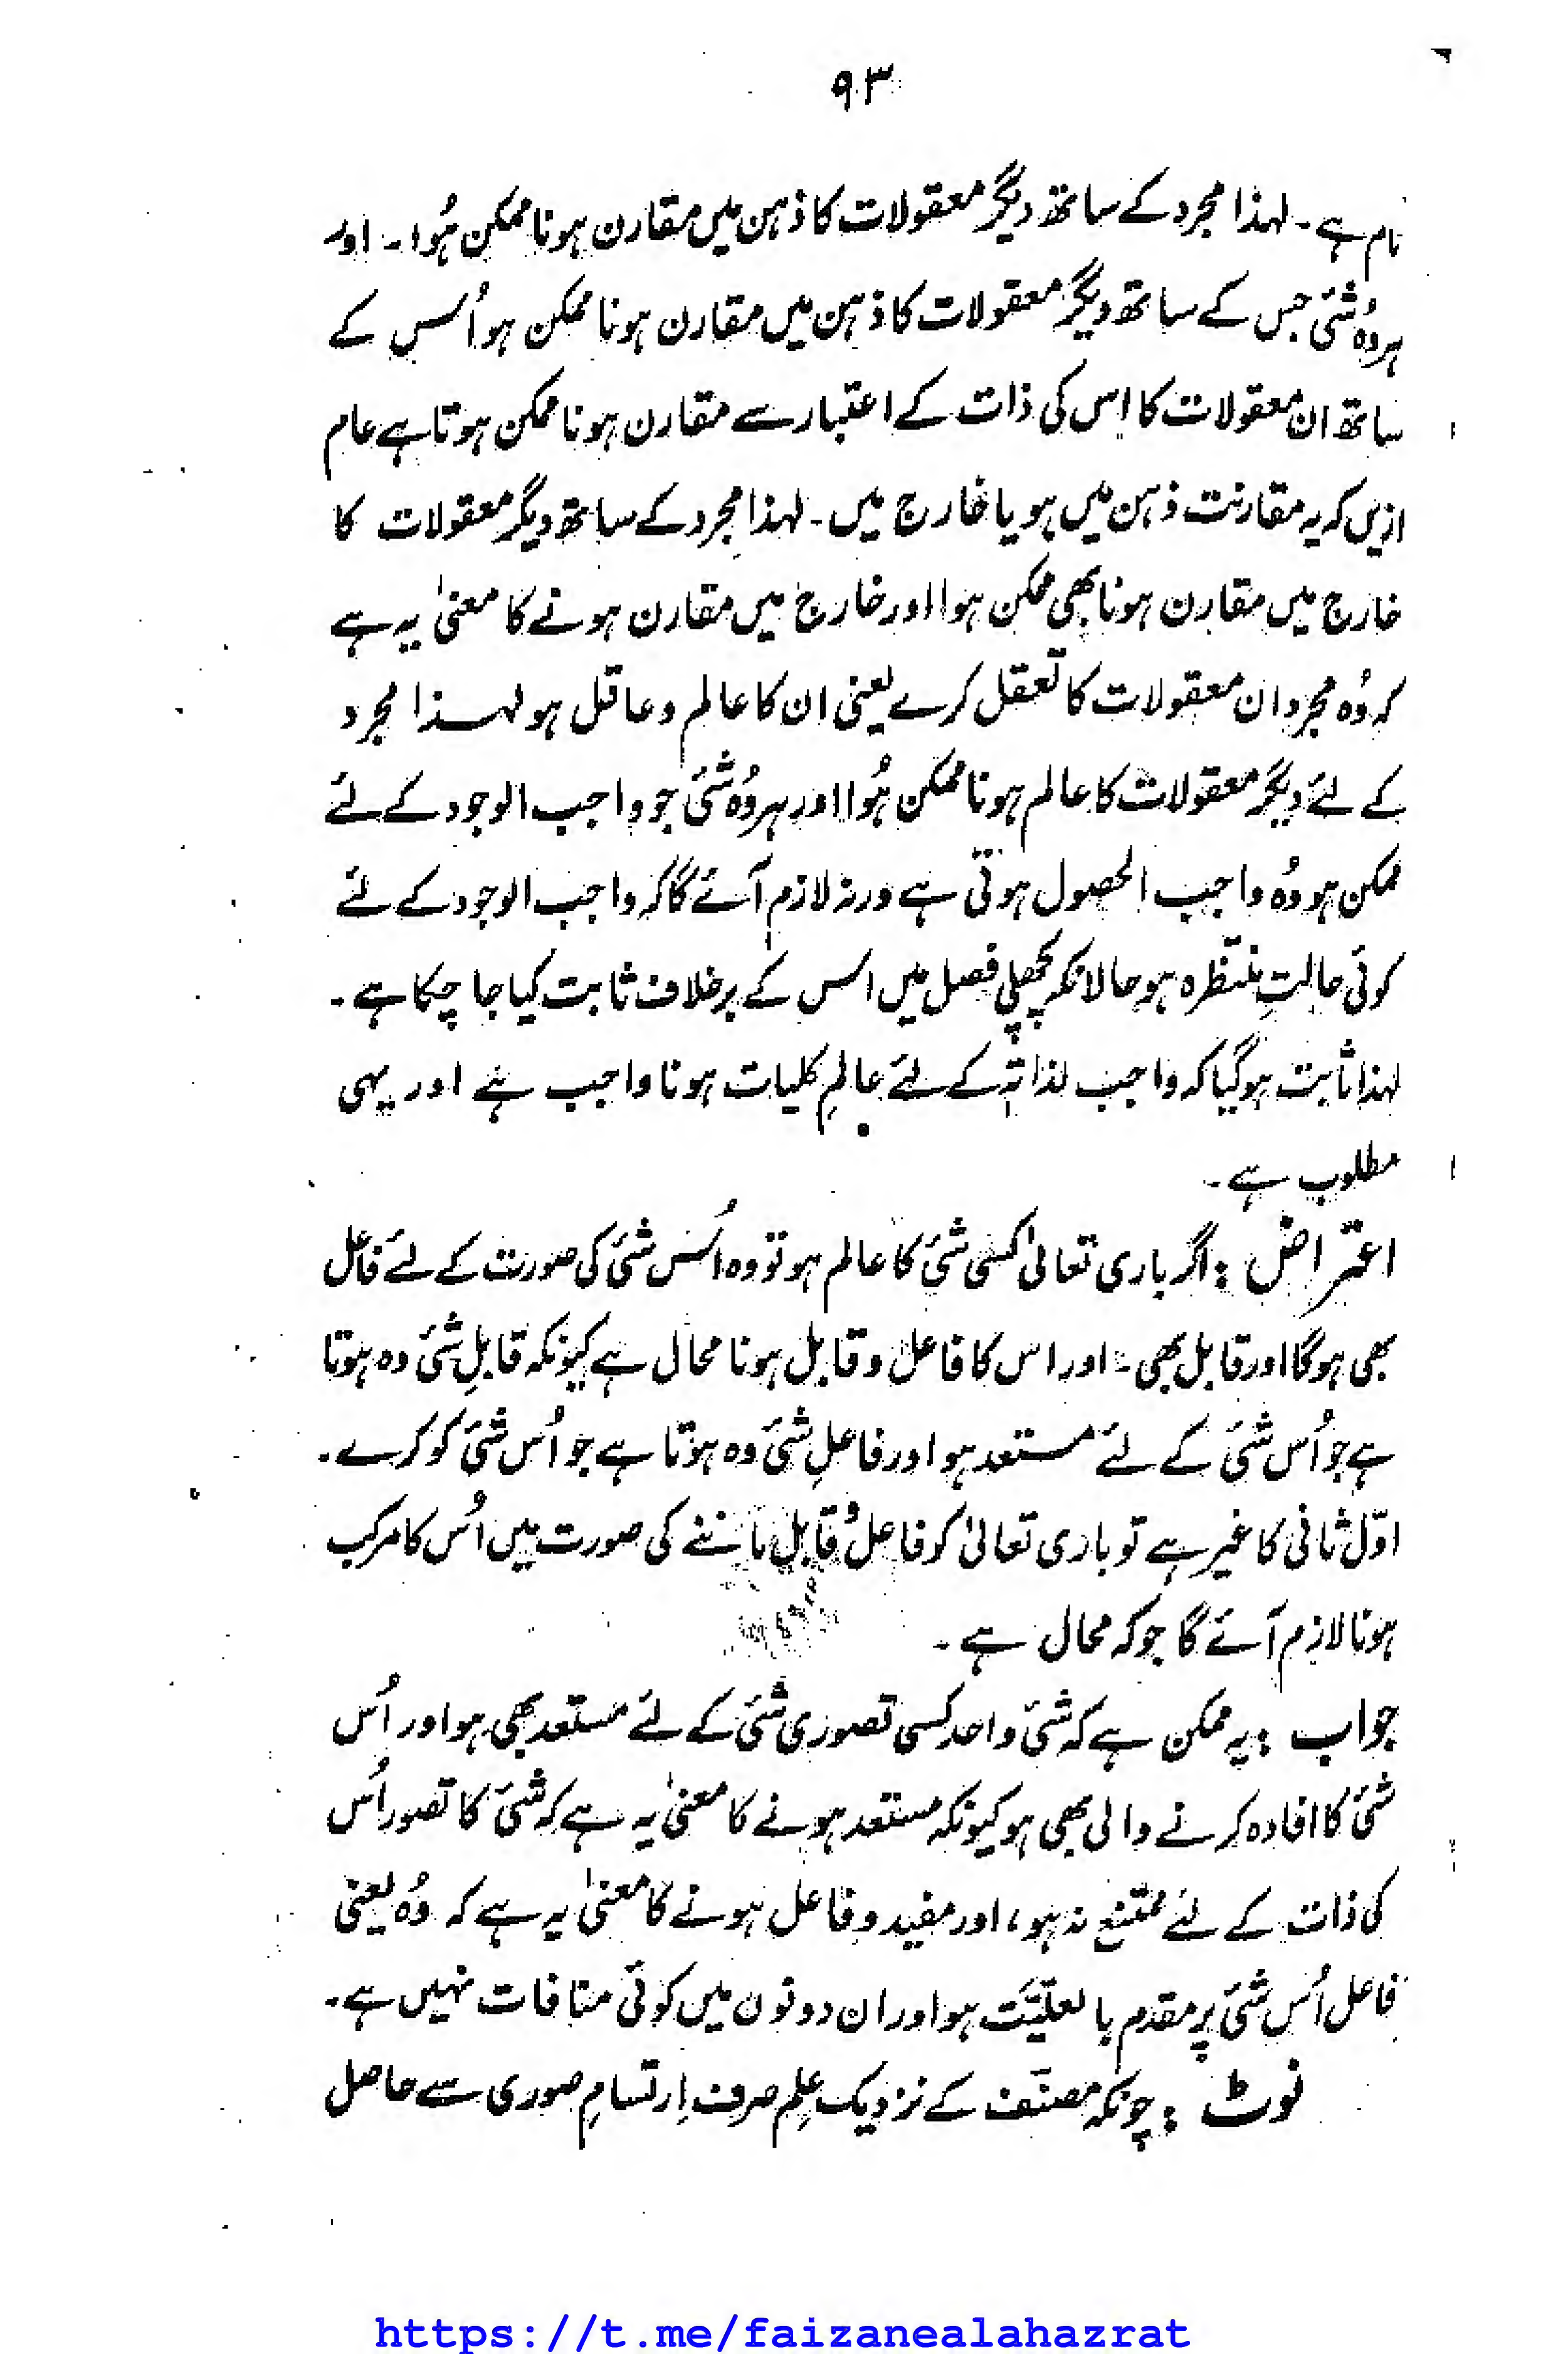 ۹۳
نام ہے۔ لہذا مجرد کے ساتھ دیگر معقولات کا ذہن میں مقارن ہونا ممکن ہُوا۔ اور
ہر وُہ شئی جس کے ساتھ دیگر معقولات کا ذہن میں مقارن ہونا ممکن ہو اُس کے
ساتھ ان معقولات کا اِس کی ذات کے اعتبار سے مقارن ہونا ممکن ہوتا ہے عام
ازیں کہ یہ مقارنت ذہن میں ہو یا خارج میں۔ لہذا مجرد کے ساتھ دیگر معقولات کا
خارج میں مقارن ہونا بھی ممکن ہوا اور خارج میں مقارن ہونے کا معنیٰ یہ ہے
کہ وُہ مجرد ان معقولات کا تعقل کرے یعنی ان کا عالم و عاقل ہو لہذا مجرد
کے لئے دیگر معقولات کا عالم ہونا ممکن ہُوا اور ہر وُہ شئی جو واجب الوجود کے لئے
ممکن ہو وُہ واجب الحصول ہوتی ہے ورنہ لازم آئے گا کہ واجب الوجود کے لئے
کوئی حالتِ منتظرہ ہو حالانکہ پچھلی فصل میں اس کے برخلاف ثابت کیا جا چکا ہے۔
لہذا ثابت ہوگیا کہ واجب لذاتہٖ کے لئے عالمِ کلیات ہونا واجب ہے اور یہی
مطلوب ہے۔
اعتراض : اگر باری تعالیٰ کسی شئی کا عالم ہو تو وہ اُس شئی کی صورت کے لئے فاعل
بھی ہوگا اور قابل بھی۔ اور اس کا فاعل و قابل ہونا محال ہے کیونکہ قابلِ شئی وہ ہوتا
ہے جو اُس شئی کے لئے مستعد ہو اور فاعلِ شئی وہ ہوتا ہے جو اُس شئی کو کرے۔
اوّل ثانی کا غیر ہے تو باری تعالیٰ کو فاعل وُ قابل ماننے کی صورت میں اُس کا مرکب
ہونا لازم آئے گا جو کہ محال ہے۔
جواب : یہ ممکن ہے کہ شئی واحد کسی تصوری شئی کے لئے مستعد بھی ہو اور اُس
شئی کا افادہ کرنے والی بھی ہو کیونکہ مستعد ہونے کا معنیٰ یہ ہے کہ شئی کا تصور اُس
کی ذات کے لئے ممتنع نہ ہو، اور مفید و فاعل ہونے کا معنیٰ یہ ہے کہ وُہ یعنی
فاعل اُس شئی پر مقدم بالعلیّت ہو اور ان دونوں میں کوئی منافات نہیں ہے۔
نوٹ : چونکہ مصنّف کے نزدیک عِلم صرف اِرتسامِ صوری سے حاصل
https://t.me/faizanealahazrat